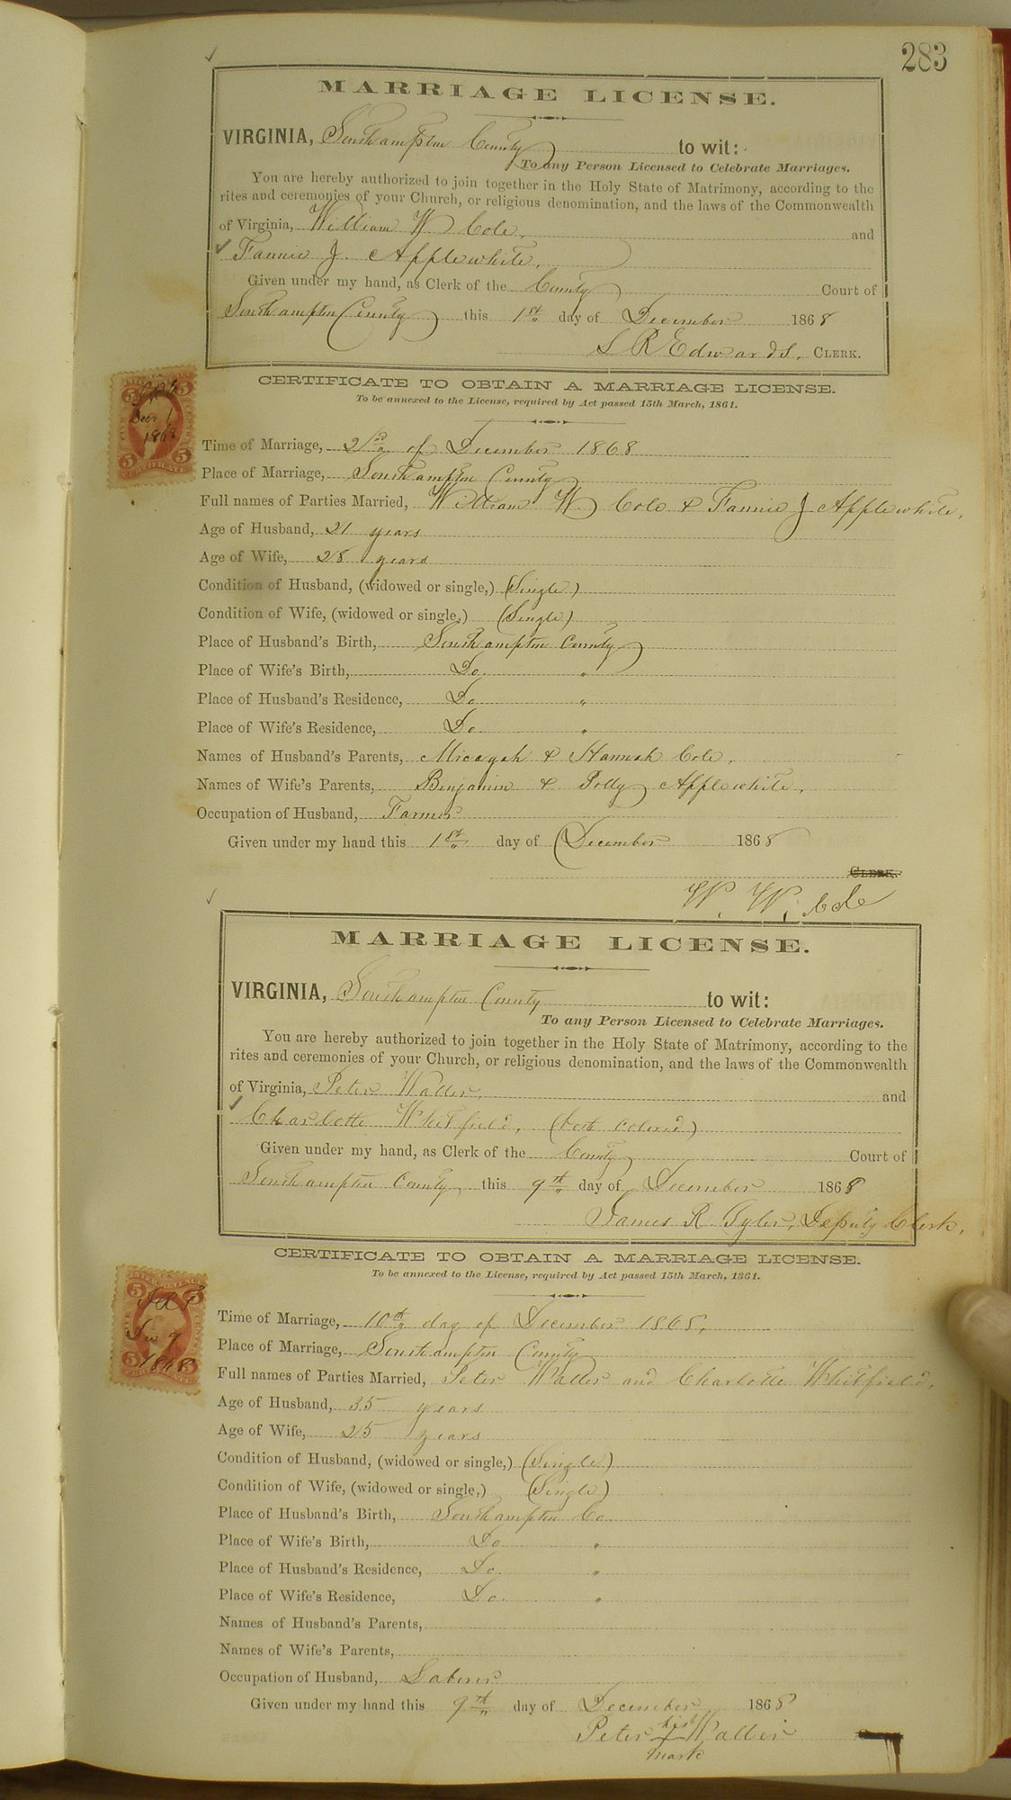 283
MARRIAGE LICENSE.
VIRGINIA, Southampton County to wit:
To any Person Licensed to Celebrate Marriages.
You are hereby authorized to join together in the Holy State of Matrimony, according to the
rites and ceremonies of your Church, or religious denomination, and the laws of the Commonwealth
of Virginia, William W. Cole, and
Fannie J. Applewhite,
Given under my hand, as Clerk of the County Court of
Southampton County this 1st day of December 1868
L R Edwards, CLERK.
CERTIFICATE TO OBTAIN A MARRIAGE LICENSE.
To be annexed to the License, required by Act passed 15th March, 1861.
Dec 1
1868
Time of Marriage, 2nd of December 1868
Place of Marriage, Southampton County
Full names of Parties Married, William W. Cole & Fannie J Applewhite.
Age of Husband, 21 years
Age of Wife, 28 years
Condition of Husband, (widowed or single,) (Single)
Condition of Wife, (widowed or single,) (Single)
Place of Husband's Birth, Southampton County
Place of Wife's Birth, Do. "
Place of Husband's Residence, Do "
Place of Wife's Residence, Do. "
Names of Husband's Parents, Micajah & Hannah Cole.
Names of Wife's Parents, Benjamin & Polly Applewhite.
Occupation of Husband, Farmer
Given under my hand this 1st day of December 1868
CLERK.
W. W. Cole
MARRIAGE LICENSE.
VIRGINIA, Southampton County to wit:
To any Person Licensed to Celebrate Marriages.
You are hereby authorized to join together in the Holy State of Matrimony, according to the
rites and ceremonies of your Church, or religious denomination, and the laws of the Commonwealth
of Virginia, Peter Waller, and
Charlotte Whitfield, (both Colored)
Given under my hand, as Clerk of the County Court of
Southampton County this 9th day of December 1868
James R. Tyler, Deputy Clerk.
CERTIFICATE TO OBTAIN A MARRIAGE LICENSE.
To be annexed to the License, required by Act passed 15th March, 1861.
Dec 9
1868
Time of Marriage, 10th day of December 1868,
Place of Marriage, Southampton County
Full names of Parties Married, Peter Waller and Charlotte Whitfield.
Age of Husband, 35 years
Age of Wife, 25 years
Condition of Husband, (widowed or single,) (Single)
Condition of Wife, (widowed or single,) (Single)
Place of Husband's Birth, Southampton Co.
Place of Wife's Birth, Do "
Place of Husband's Residence, Do. "
Place of Wife's Residence, Do. "
Names of Husband's Parents,
Names of Wife's Parents,
Occupation of Husband, Laborer
Given under my hand this 9th day of December 1868
Peter his Waller
mark